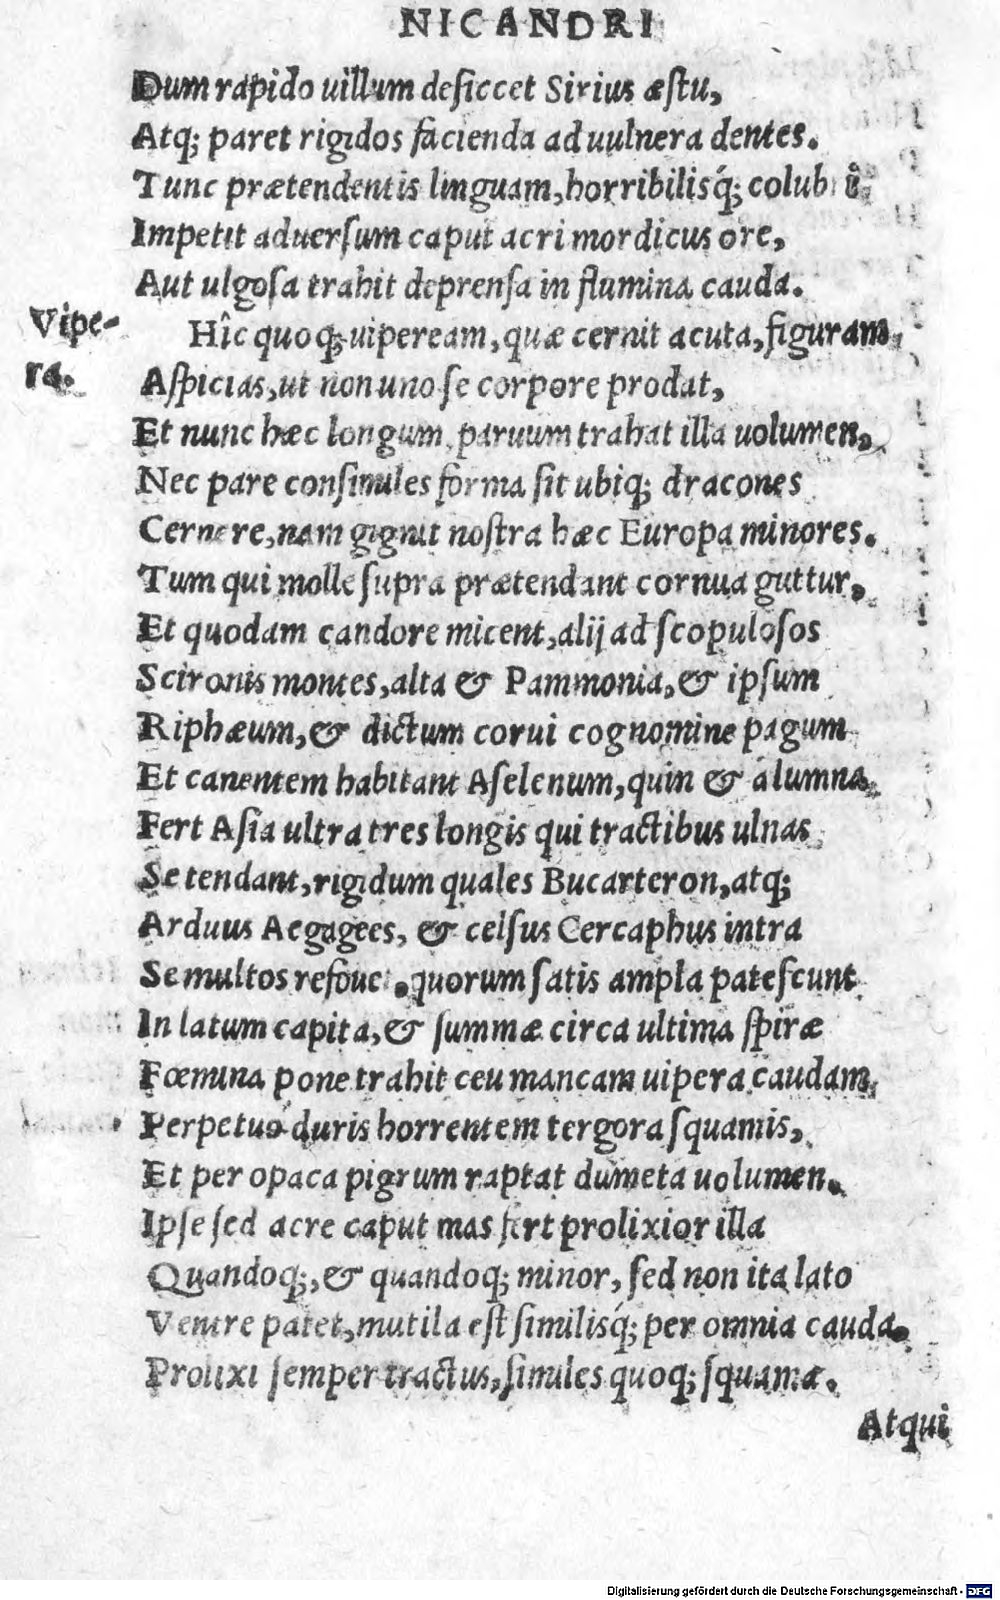 NICANDRI
Dum rapido uillum desiccet Sirius æstu,
Atq; paret rigidos facienda ad uulnera dentes.
Tunc prætendentis linguam, horribilisq́; colubri
Impetit aduersum caput acri mordicus ore,
Aut ulgosa trahit deprensa in flumina cauda.
Vipe-
ra.
Hîc quoq; uipeream, quæ cernit acuta, figuram,
Aspicias, ut non uno se corpore prodat,
Et nunc hæc longum, paruum trahat illa uolumen,
Nec pare consimiles forma sit ubiq; dracones
Cernere, nam gignit nostra hæc Europa minores.
Tum qui molle supra prætendant cornua guttur,
Et quodam candore micent, alij ad scopulosos
Scironis montes, alta & Pammonia, & ipsum
Riphæum, & dictum corui cognomine pagum
Et canentem habitant Aselenum, quin & alumna
Fert Asia ultra tres longis qui tractibus ulnas
Se tendant, rigidum quales Bucarteron, atq;
Arduus Aegagees, & celsus Cercaphus intra
Se multos refouet. quorum satis ampla patescunt
In latum capita, & summæ circa ultima spiræ
Fœmina pone trahit ceu mancam uipera caudam,
Perpetuo duris horrentem tergora squamis,
Et per opaca pigrum raptat dumeta uolumen.
Ipse sed acre caput mas fert prolixior illa
Quandoq;, & quandoq; minor, sed non ita lato
Ventre patet, mutila est similisq́; per omnia cauda.
Prolixi semper tractus, similes quoq; squamæ.
Atqui
Digitalisierung gefördert durch die Deutsche Forschungsgemeinschaft - DFG